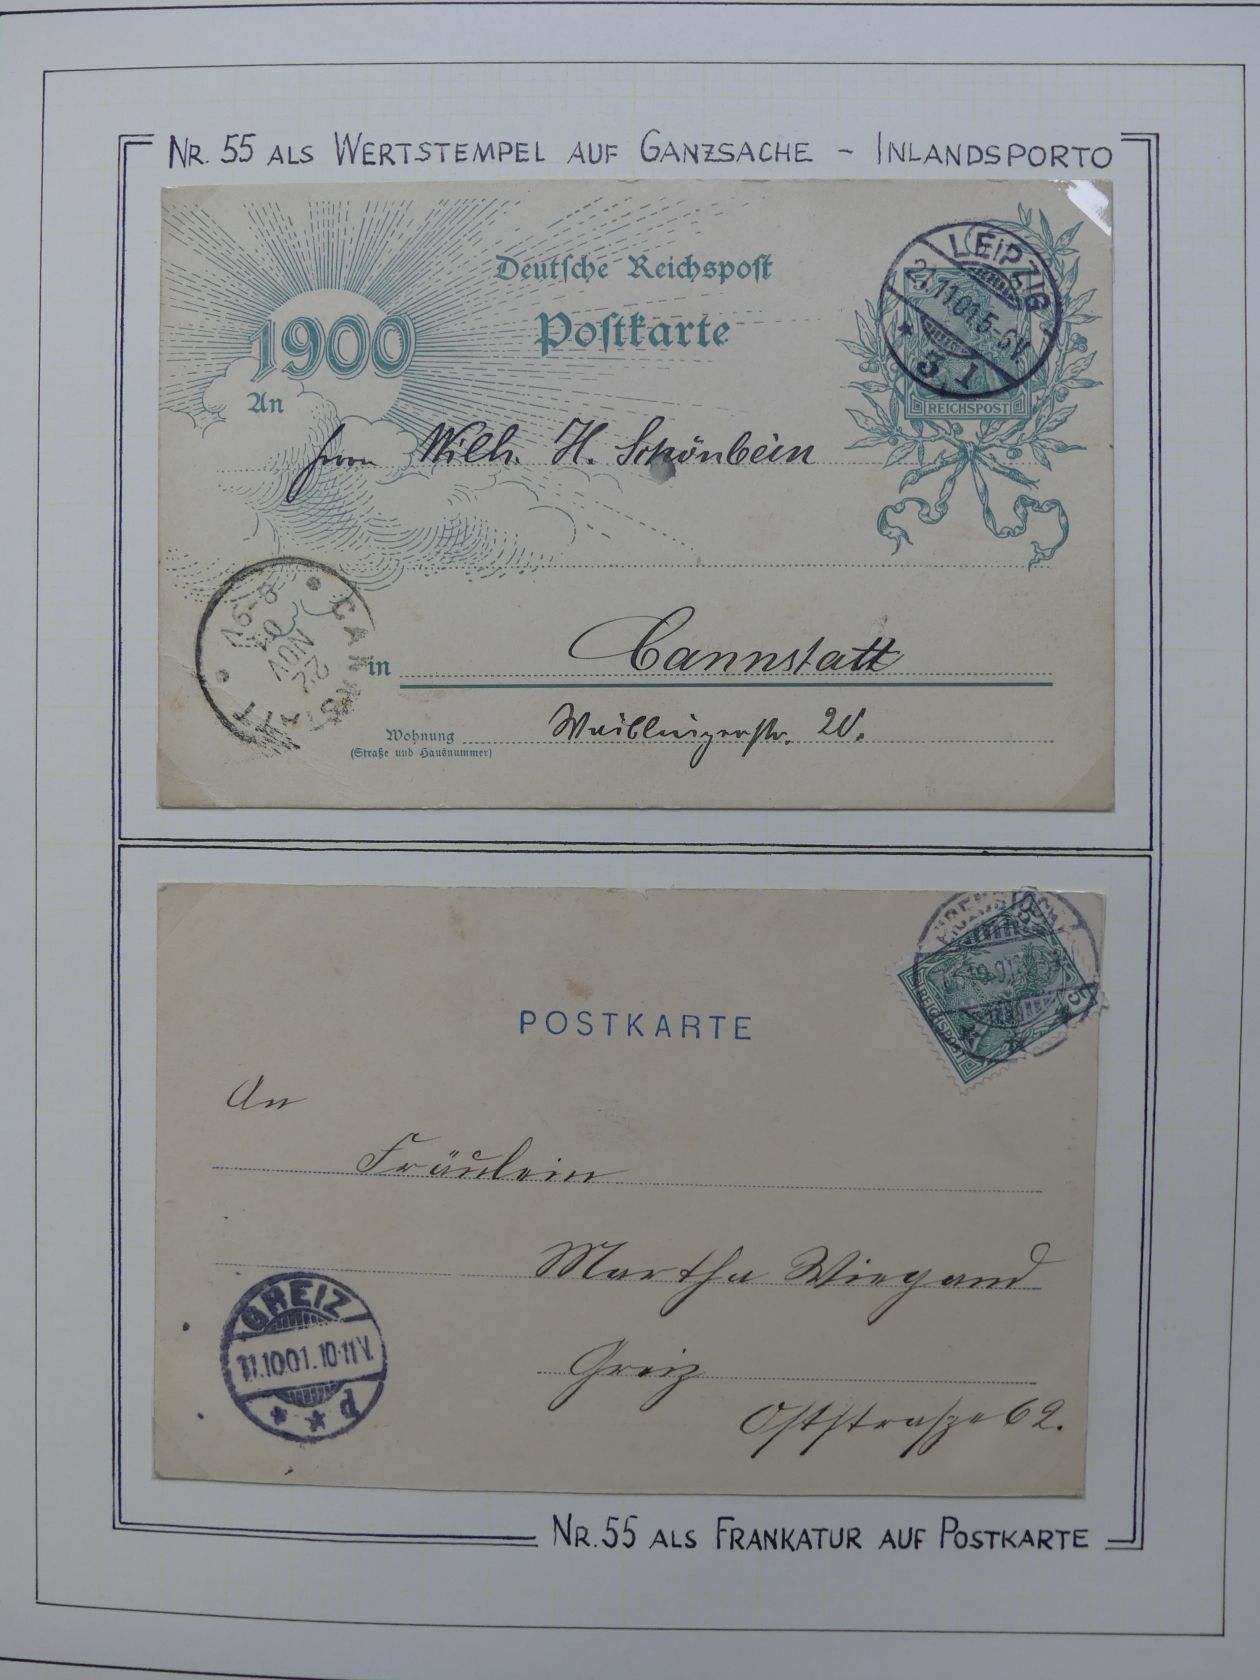 NR. 55 ALS WERTSTEMPEL AUF GANZSACHE - INLANDSPORTO
Deutsche Reichspost
Postkarte
1900
An
LEIPZIG
21.11.01.5-6V.
* 5.1
REICHSPOST
Herrn Wilh. H. Schönbein
CANNSTATT
22
NOV
01
8-9V
in Cannstatt
Wohnung Waiblingerstr. 20.
(Straße und Hausnummer)
POSTKARTE
REICHSPOST
5
An
Fräulein
Martha Wiegand
Greiz
Oststrasze 62.
GREIZ
11.10.01.10-11V.
* * b
NR. 55 ALS FRANKATUR AUF POSTKARTE